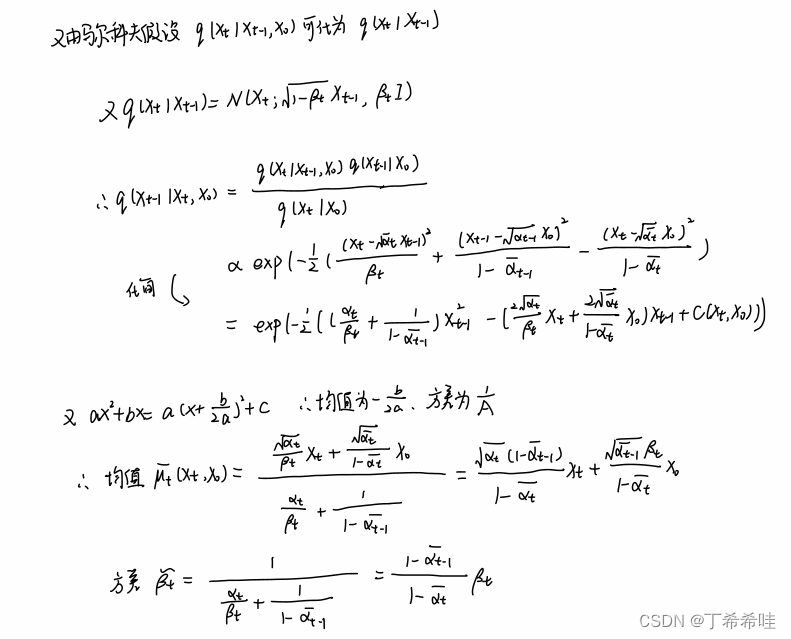 又由马尔科夫假设 q(x_t|x_{t-1},x_0) 可化为 q(x_t|x_{t-1})
又 q(x_t|x_{t-1}) = N(x_t; √(1-β_t) x_{t-1}, β_t I)
∴ q(x_{t-1}|x_t,x_0) = \frac{q(x_t|x_{t-1},x_0) q(x_{t-1}|x_0)}{q(x_t|x_0)}
∝ exp(-\frac{1}{2}(\frac{(x_t-\sqrt{α_t} x_{t-1})^2}{β_t} + \frac{(x_{t-1}-\sqrt{\bar{α}_{t-1}} x_0)^2}{1-\bar{α}_{t-1}} - \frac{(x_t-\sqrt{\bar{α}_t} x_0)^2}{1-\bar{α}_t})
化简
= exp(-\frac{1}{2}((\frac{α_t}{β_t} + \frac{1}{1-\bar{α}_{t-1}}) x_{t-1}^2 - (\frac{2\sqrt{α_t}}{β_t} x_t + \frac{2\sqrt{\bar{α}_t}}{1-\bar{α}_t} x_0) x_{t-1} + C(x_t,x_0)))
又 ax²+bx = a(x+\frac{b}{2a})²+c ∴均值为 -\frac{b}{2a}. 方差为 \frac{1}{A}
∴ 均值 \tilde{μ}_t(x_t,x_0) = \frac{\frac{\sqrt{α_t}}{β_t} x_t + \frac{\sqrt{\bar{α}_t}}{1-\bar{α}_t} x_0}{\frac{α_t}{β_t} + \frac{1}{1-\bar{α}_{t-1}}} = \frac{\sqrt{α_t}(1-\bar{α}_{t-1})}{1-\bar{α}_t} x_t + \frac{\sqrt{\bar{α}_{t-1}} β_t}{1-\bar{α}_t} x_0
方差 \tilde{β}_t = \frac{1}{\frac{α_t}{β_t} + \frac{1}{1-\bar{α}_{t-1}}} = \frac{1-\bar{α}_{t-1}}{1-\bar{α}_t} β_t
CSDN @丁希希哇